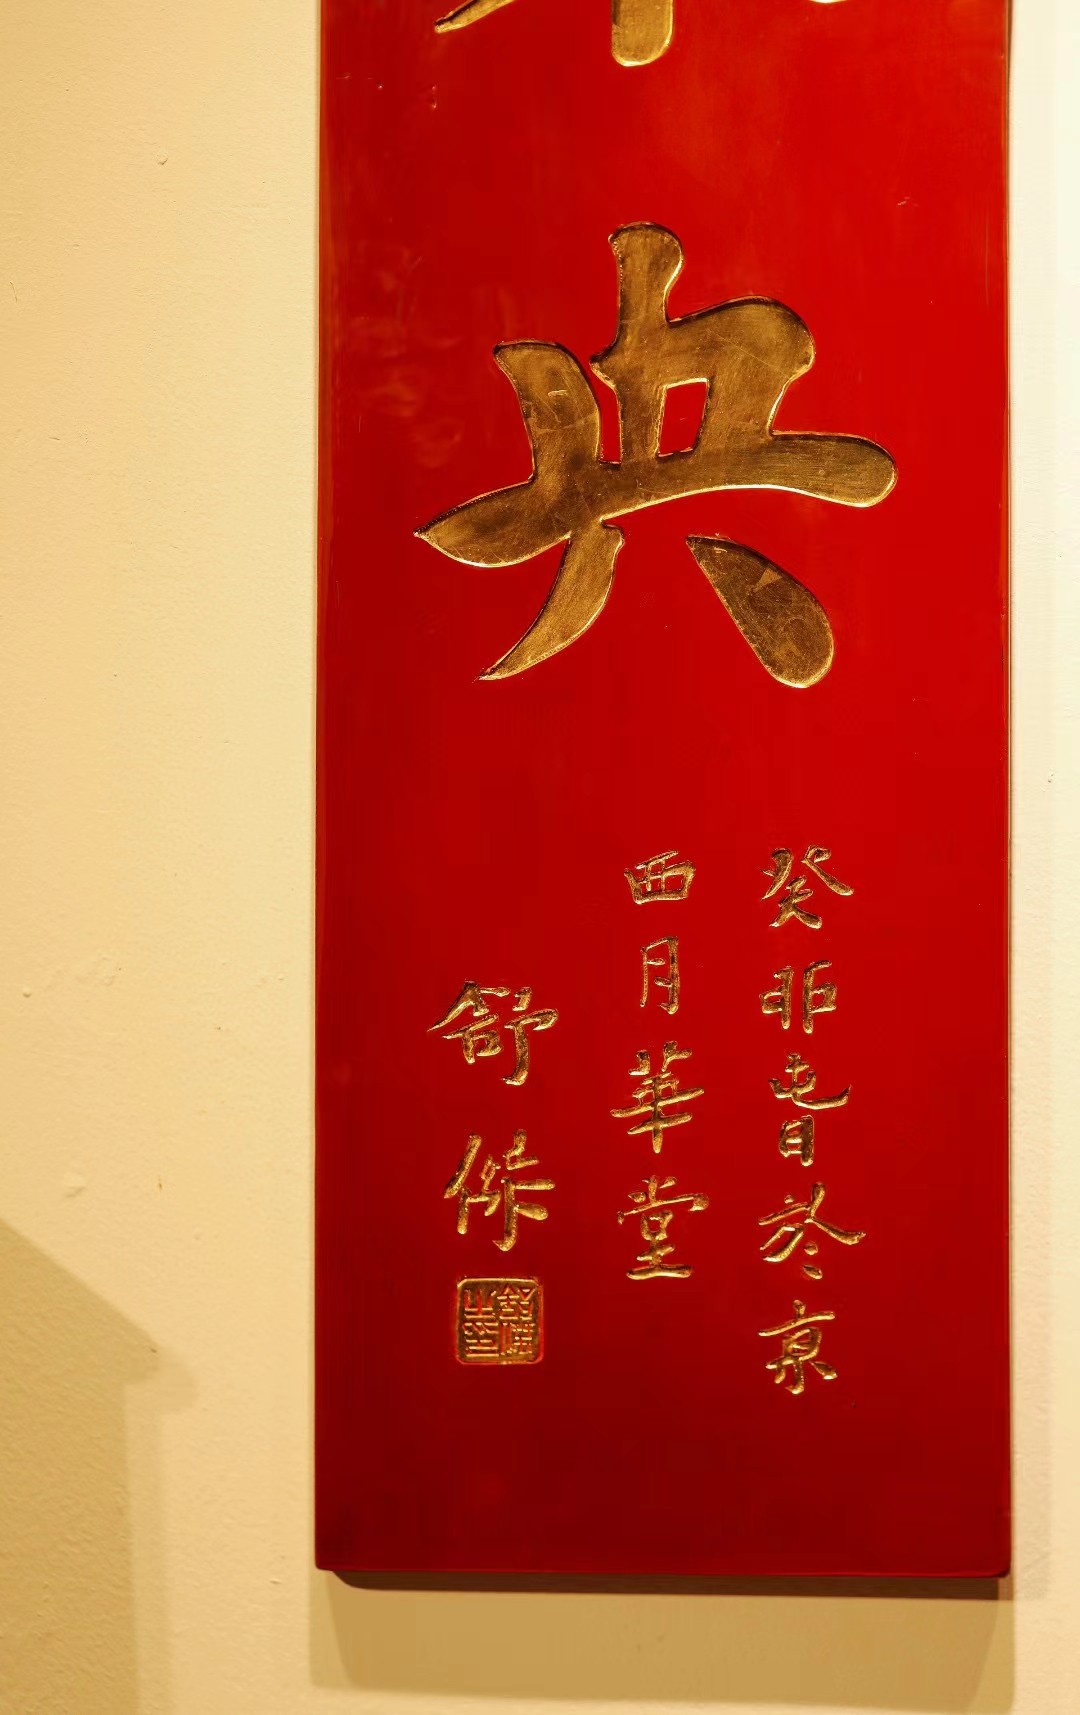 央
癸卯春日於京
西月華堂
舒傑